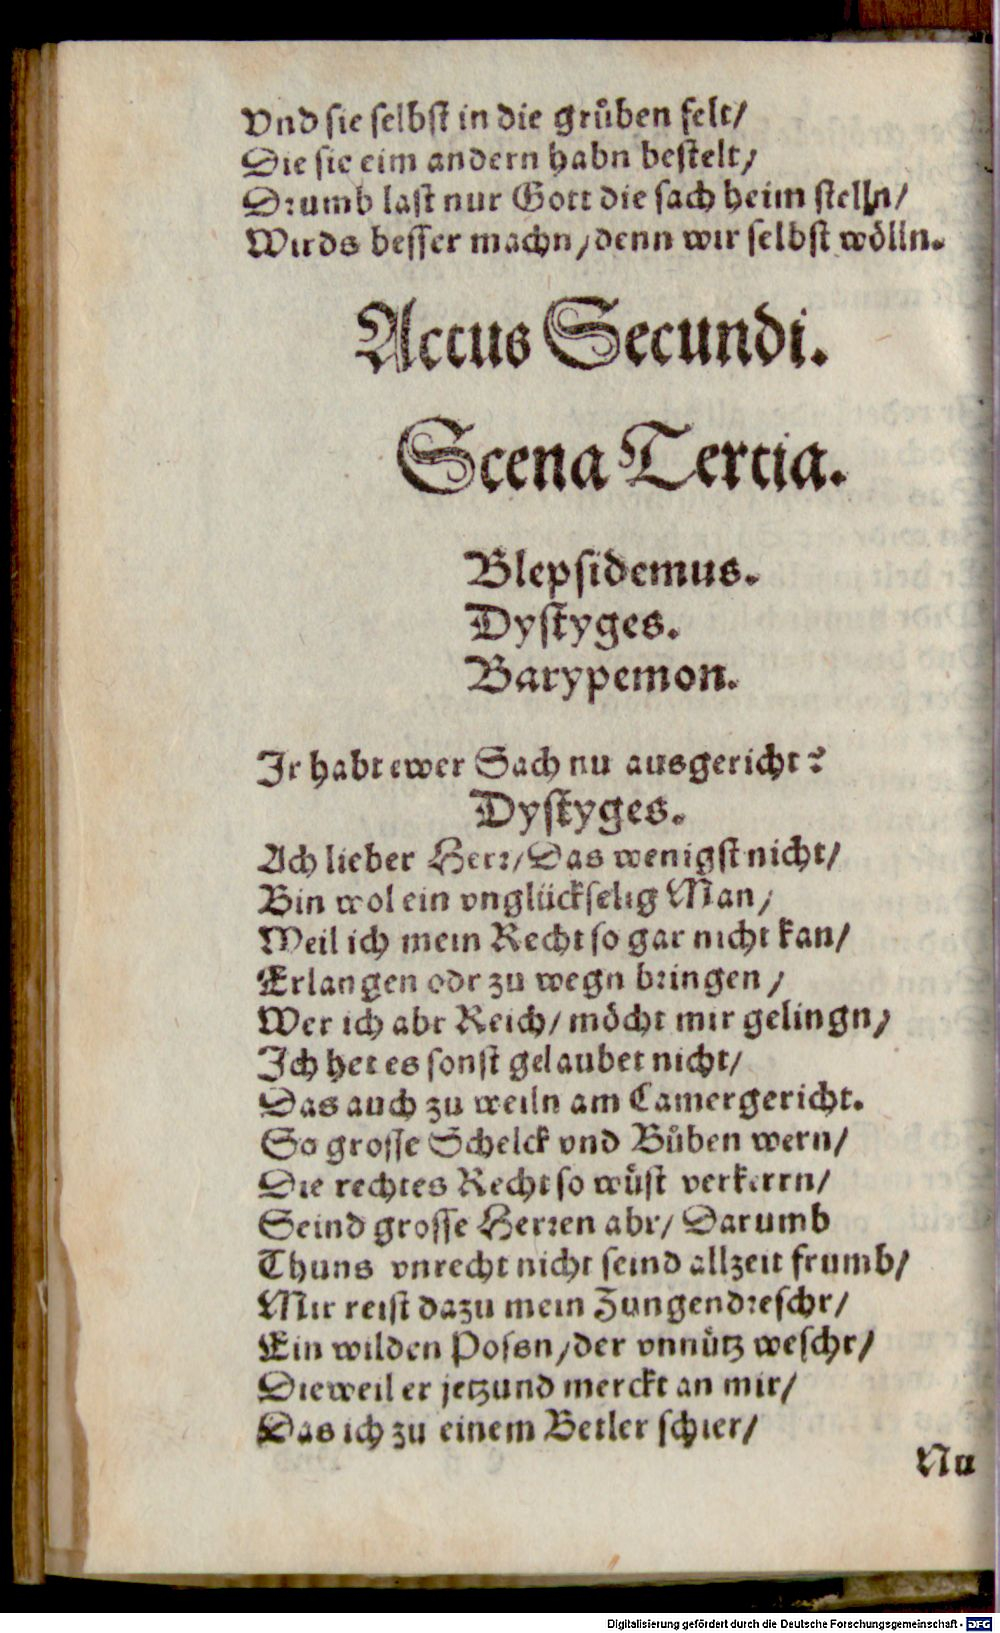 Vnd sie selbst in die grůben felt/
Die sie eim andern habn bestelt/
Drumb last nur Gott die sach heim stelln/
Wirds besser machn/denn wir selbst wölln.
Actus Secundi.
Scena Tertia.
Blepsidemus.
Dystyges.
Barypemon.
Jr habt ewer Sach nu ausgericht?
Dystyges.
Ach lieber Herr/Das wenigst nicht/
Bin wol ein vnglückselig Man/
Weil ich mein Recht so gar nicht kan/
Erlangen odr zu wegn bringen/
Wer ich abr Reich/möcht mir gelingn/
Jch het es sonst gelaubet nicht/
Das auch zu weiln am Camergericht.
So grosse Schelck vnd Bůben wern/
Die rechtes Recht so wüst verkerrn/
Seind grosse Herren abr/Darumb
Thuns vnrecht nicht seind allzeit frumb/
Mir reist dazu mein Zungendreschr/
Ein wilden Possn/der vnnütz weschr/
Dieweil er jetzund merckt an mir/
Das ich zu einem Betler schier/
Nu
Digitalisierung gefördert durch die Deutsche Forschungsgemeinschaft - DFG